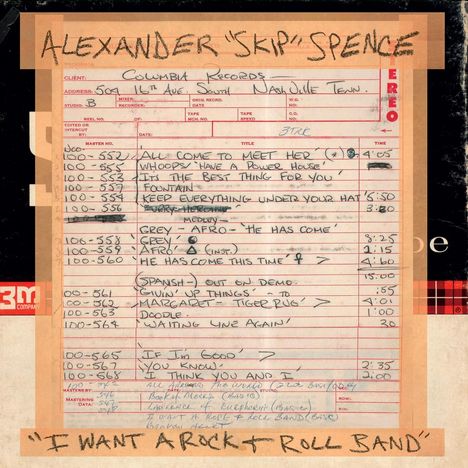 ALEXANDER "SKIP" SPENCE
CLIENT: COLUMBIA RECORDS
ADDRESS: 504 16TH AVE. SOUTH NASHVILLE TENN.
STUDIO: B MIXER: RECORDER: ORIG. RECORD. DATE W.O. NO.
STEREO
REEL NO. OF TAPE MCH. NO. TAPE SPEED C.O. NO.
EDITED OR INTERCUT BY DATE: 3TRK
MASTER NO. TITLE TIME
NCO-
100-552 'ALL COME TO MEET HER' (*) 4:05
100-553 WHOOPS 'HAVE A POWER HOUSE'
100-553 'ITS THE BEST THING FOR YOU'
100-557 FOUNTAIN
100-554 KEEP EVERYTHING UNDER YOUR HAT' 5:50
100-556 3:20
MEDLEY-
GREY - AFRO - 'HE HAS COME'
100-558 'GREY' 8:25
100-559 'AFRO' (INST.) 1:15
100-560 'HE HAS COME THIS TIME' 4:60
15:00
(SPANISH-) OUT ON DEMO
100-561 'GIVIN' UP THINGS' - TO :55
100-562 'MARGARET - TIGER RUG' > 4:01
100-563 DOODLE 1:00
100-564 'WAITING LINE AGAIN' 30
100-565 IF I'M GOOD >
100-567 YOU KNOW 2:35
100-568 I THINK YOU AND I 2:00
MASTERED BY ALL AROUND THE WORLD
MASTERING DATA: 546 BOOK OF MOSES (BASIC) ROW.
547 LAWRENCE OF EUPHORIA (BASIC) COL.
I WANT A ROCK & ROLL BAND (BASIC)
BROKEN HEART
3M
COMPANY
"I WANT A ROCK + ROLL BAND"